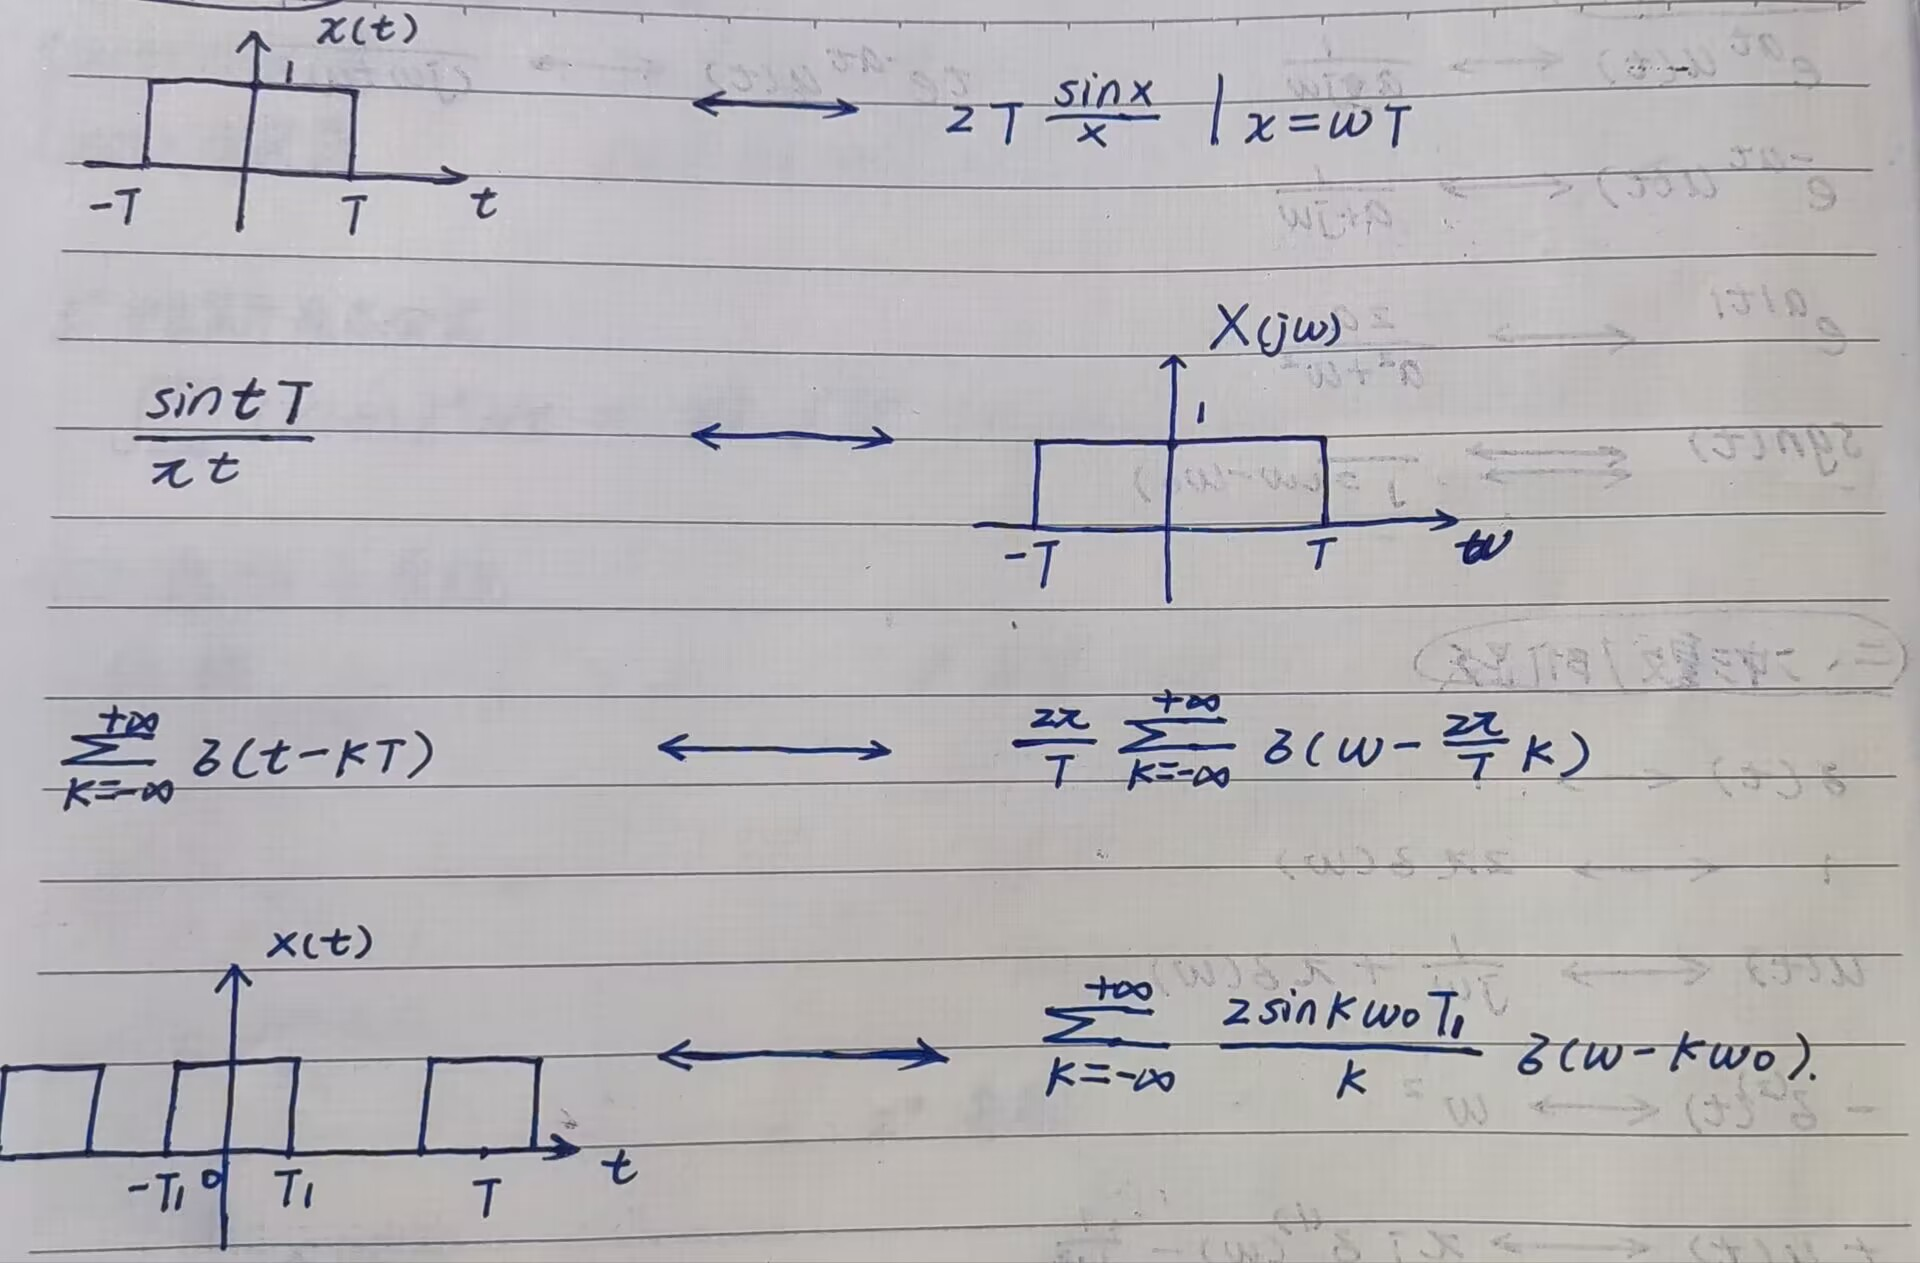 x(t)
1
-T T t
2T sinx/x | x=ωT
X(jω)
sintT/πt
1
-T T ω
+∞ ∑ k=-∞ δ(t-kT)
2π/T +∞ ∑ k=-∞ δ(ω-2π/T k)
x(t)
-T₁ 0 T₁ T t
+∞ ∑ k=-∞ 2sinkω₀T₁/k δ(ω-kω₀).